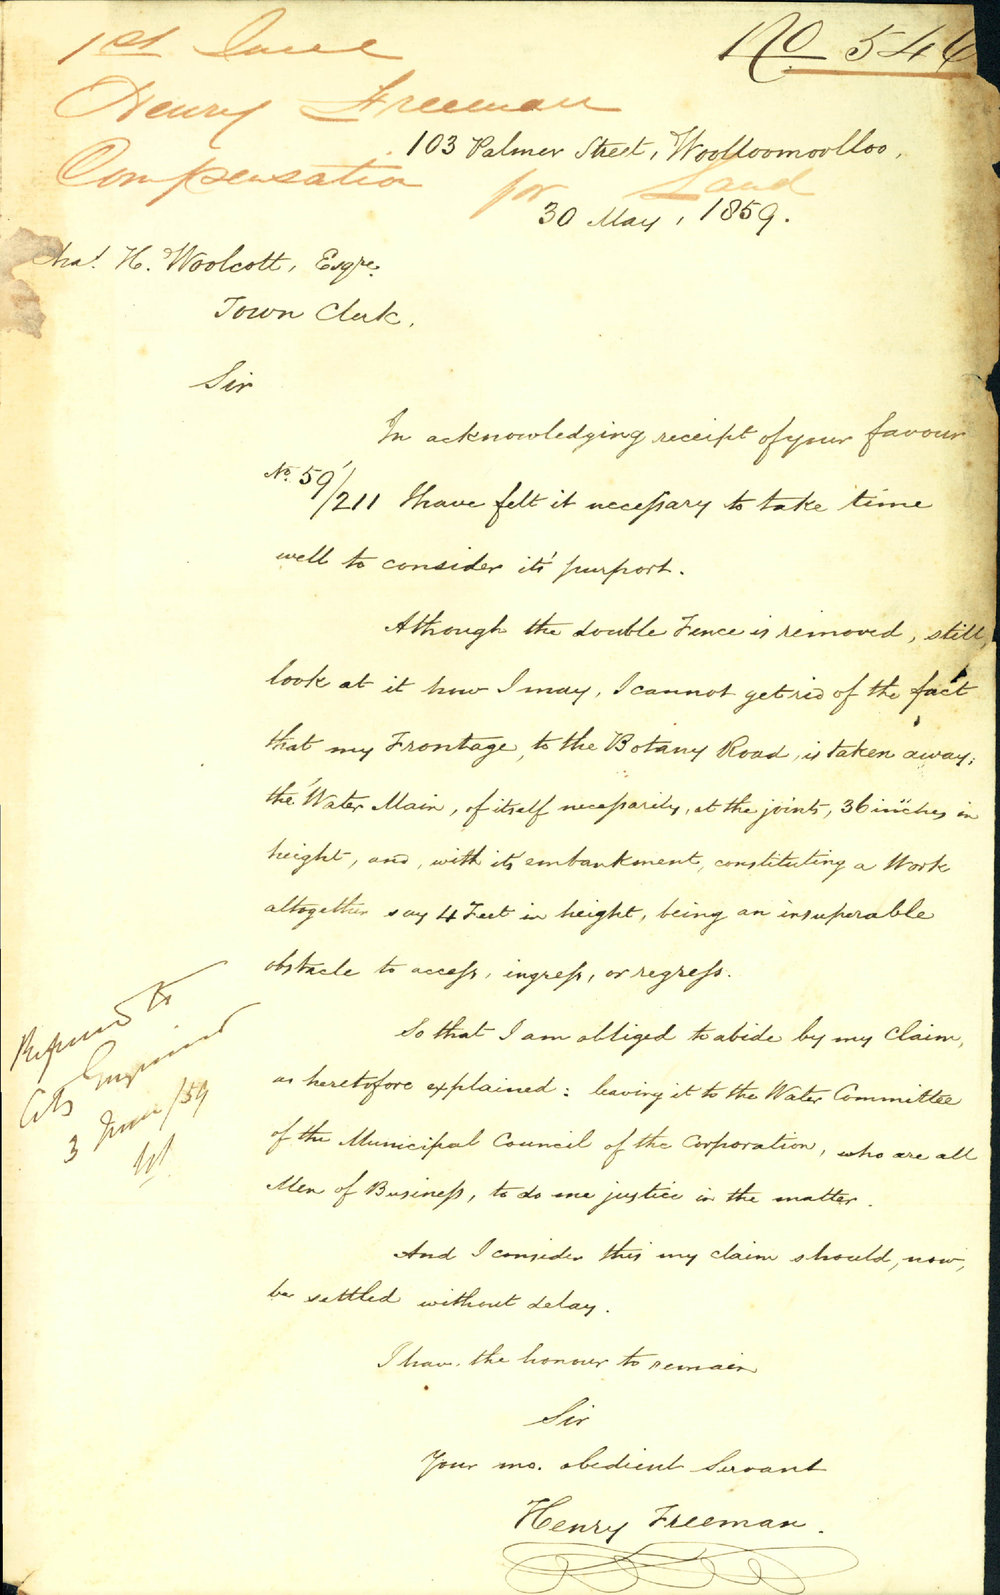 1st June
No 546
Henry Freeman
Compensation for Land
103 Palmer Street, Woolloomoolloo,
30 May, 1859.
Chas. H. Woolcott, Esqre.
Town Clerk.
Sir
In acknowledging receipt of your favour
No. 59/211 I have felt it necessary to take time
well to consider it's purport.
Although the double Fence is removed, still,
look at it how I may, I cannot get rid of the fact
that my Frontage, to the Botany Road, is taken away;
the Water Main, of itself necessarily, at the joints, 36 inches in
height, and, with it's embankment, constituting a Work
altogether say 4 Feet in height, being an insuperable
obstacle to access, ingress, or regress.
So that I am obliged to abide by my Claim,
as heretofore explained: leaving it to the Water Committee
of the Municipal Council of the Corporation, who are all
Men of Business, to do me justice in the matter.
And I consider this my claim should, now,
be settled without delay.
I have the honour to remain
Sir
Your mo. obedient Servant
Henry Freeman.
Referred to
City Engineer
3 June/59